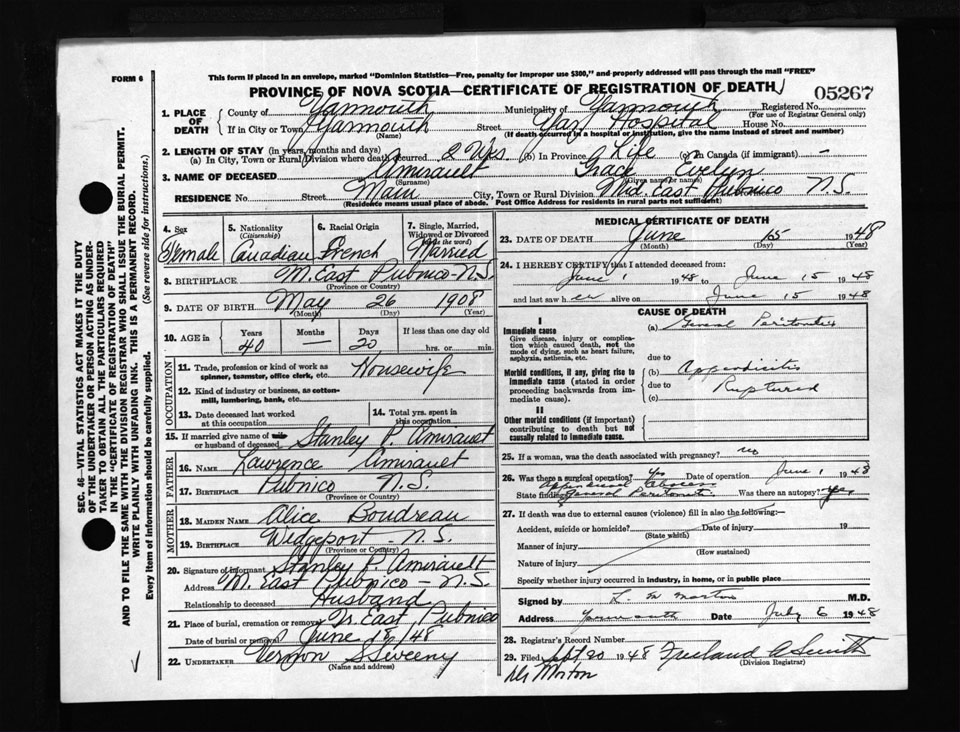 FORM 6
This form if placed in an envelope, marked "Dominion Statistics—Free, penalty for improper use $300," and properly addressed will pass through the mail "FREE"
PROVINCE OF NOVA SCOTIA—CERTIFICATE OF REGISTRATION OF DEATH
05267
1. PLACE OF DEATH
County of Yarmouth Municipality of Yarmouth Registered No.
(For use of Registrar General only)
If in City or Town Yarmouth Street Yar. Hospital House No.
(Name) (If death occurred in a hospital or institution, give the name instead of street and number)
2. LENGTH OF STAY (in years, months and days)
(a) In City, Town or Rural Division where death occurred 2 Wks (b) In Province Life (c) In Canada (if immigrant) –
3. NAME OF DECEASED Amirault Grace Evelyn
(Surname) (Given name or names)
RESIDENCE No. Street Main City, Town or Rural Division Mid. East Pubnico N.S.
(Residence means usual place of abode. Post Office Address for residents in rural parts not sufficient)
4. Sex Female
5. Nationality (Citizenship) Canadian
6. Racial Origin French
7. Single, Married, Widowed or Divorced (write the word) Married
8. BIRTHPLACE M. East Pubnico - N.S.
(Province or Country)
9. DATE OF BIRTH May 26 1908
(Month) (Day) (Year)
10. AGE in Years 40 Months — Days 20 If less than one day old
hrs. or min.
OCCUPATION
11. Trade, profession or kind of work as spinner, teamster, office clerk, etc. Housewife
12. Kind of industry or business, as cotton-mill, lumbering, bank, etc.
13. Date deceased last worked at this occupation
14. Total yrs. spent in this occupation
15. If married give name of wife or husband of deceased Stanley P. Amirault
FATHER
16. NAME Lawrence Amirault
17. BIRTHPLACE Pubnico N.S.
(Province or Country)
MOTHER
18. MAIDEN NAME Alice Boudreau
19. BIRTHPLACE Wedgeport - N.S.
(Province or Country)
20. Signature of informant Stanley P. Amirault
Address M. East Pubnico - N.S.
Relationship to deceased Husband
21. Place of burial, cremation or removal East Pubnico
Date of burial or removal June 18, '48
22. UNDERTAKER Vernon Sweeny
(Name and address)
MEDICAL CERTIFICATE OF DEATH
23. DATE OF DEATH June 15 1948
(Month) (Day) (Year)
24. I HEREBY CERTIFY that I attended deceased from:
June 1 1948 to June 15 1948
and last saw her alive on June 15 1948
CAUSE OF DEATH
I
Immediate cause
Give disease, injury or complication which caused death, not the mode of dying, such as heart failure, asphyxia, asthenia, etc.
(a) General Peritonitis
due to
Morbid conditions, if any, giving rise to immediate cause (stated in order proceeding backwards from immediate cause).
(b) Appendicitis
due to Ruptured
(c)
II
Other morbid conditions (if important) contributing to death but not causally related to immediate cause.
25. If a woman, was the death associated with pregnancy? no
26. Was there a surgical operation? yes Date of operation June 1 1948
Appendiceal Abscess
State findings General Peritonitis Was there an autopsy? Yes
27. If death was due to external causes (violence) fill in also the following:—
Accident, suicide or homicide? Date of injury 19
(State which)
Manner of injury
(How sustained)
Nature of injury
Specify whether injury occurred in industry, in home, or in public place
Signed by L. M. Morton M.D.
Address Yarmouth Date July 8 1948
28. Registrar's Record Number
29. Filed Sept 20 1948
(Division Registrar)
Dr Morton
SEC. 46—VITAL STATISTICS ACT MAKES IT THE DUTY
OF THE UNDERTAKER OR PERSON ACTING AS UNDER-
TAKER TO OBTAIN ALL THE PARTICULARS REQUIRED
IN THE "CERTIFICATE OF REGISTRATION OF DEATH"
AND TO FILE THE SAME WITH THE DIVISION REGISTRAR WHO SHALL ISSUE THE BURIAL PERMIT.
WRITE PLAINLY WITH UNFADING INK. THIS IS A PERMANENT RECORD.
Every item of information should be carefully supplied. (See reverse side for instructions.)